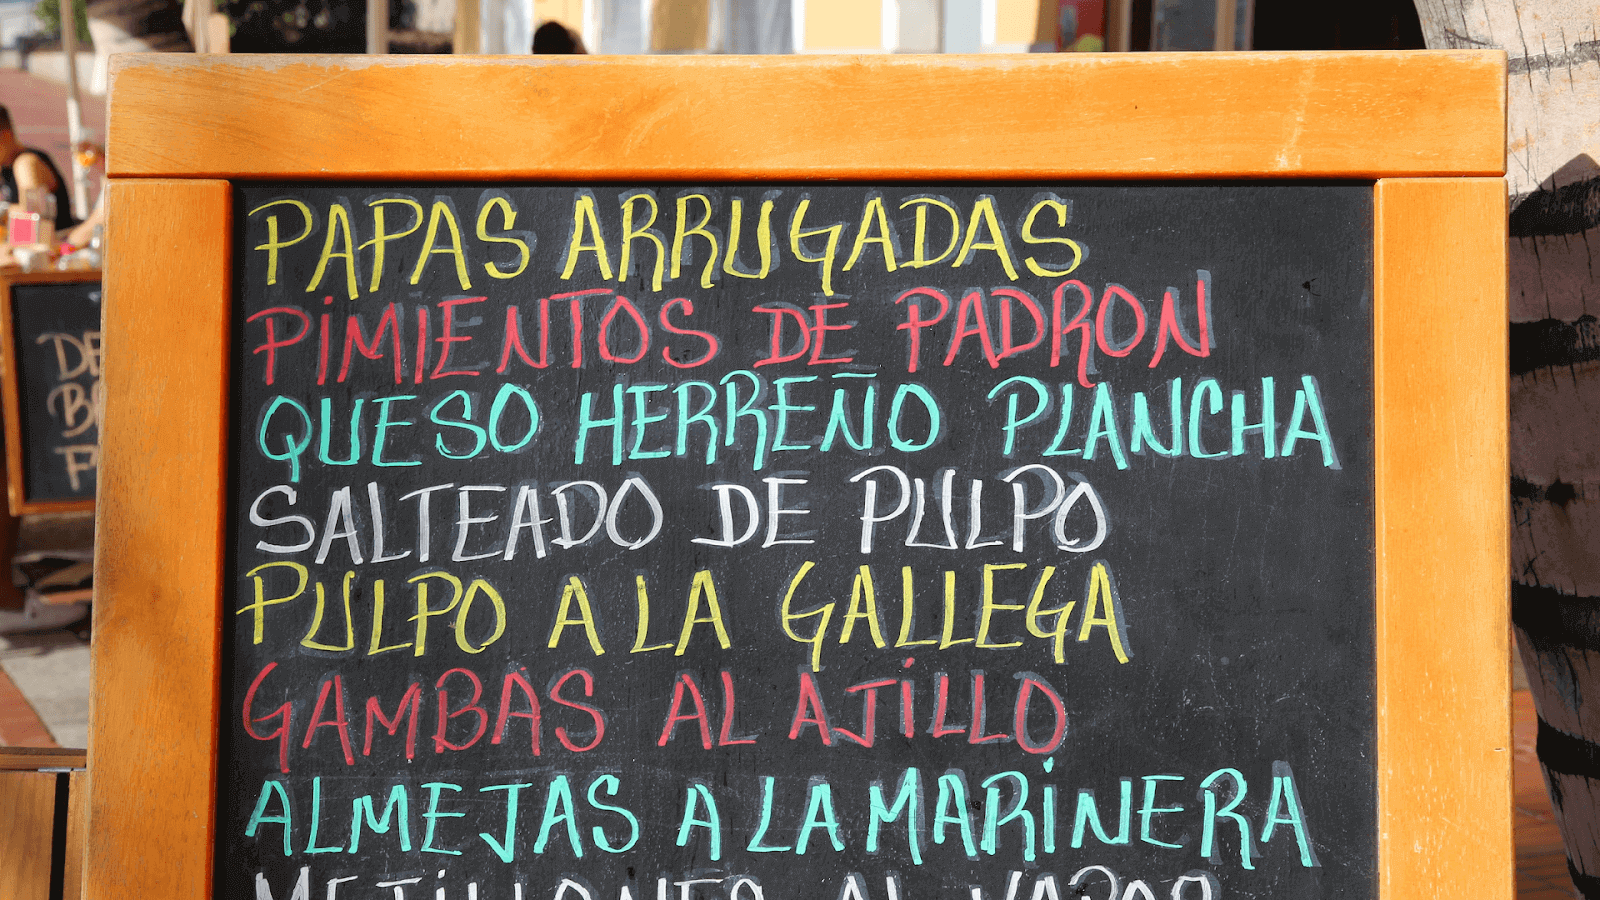 PAPAS ARRUGADAS
PIMIENTOS DE PADRON
QUESO HERREÑO PLANCHA
SALTEADO DE PULPO
PULPO A LA GALLEGA
GAMBAS AL AJILLO
ALMEJAS A LA MARINERA
MEJILLONES AL VAPOR
DE